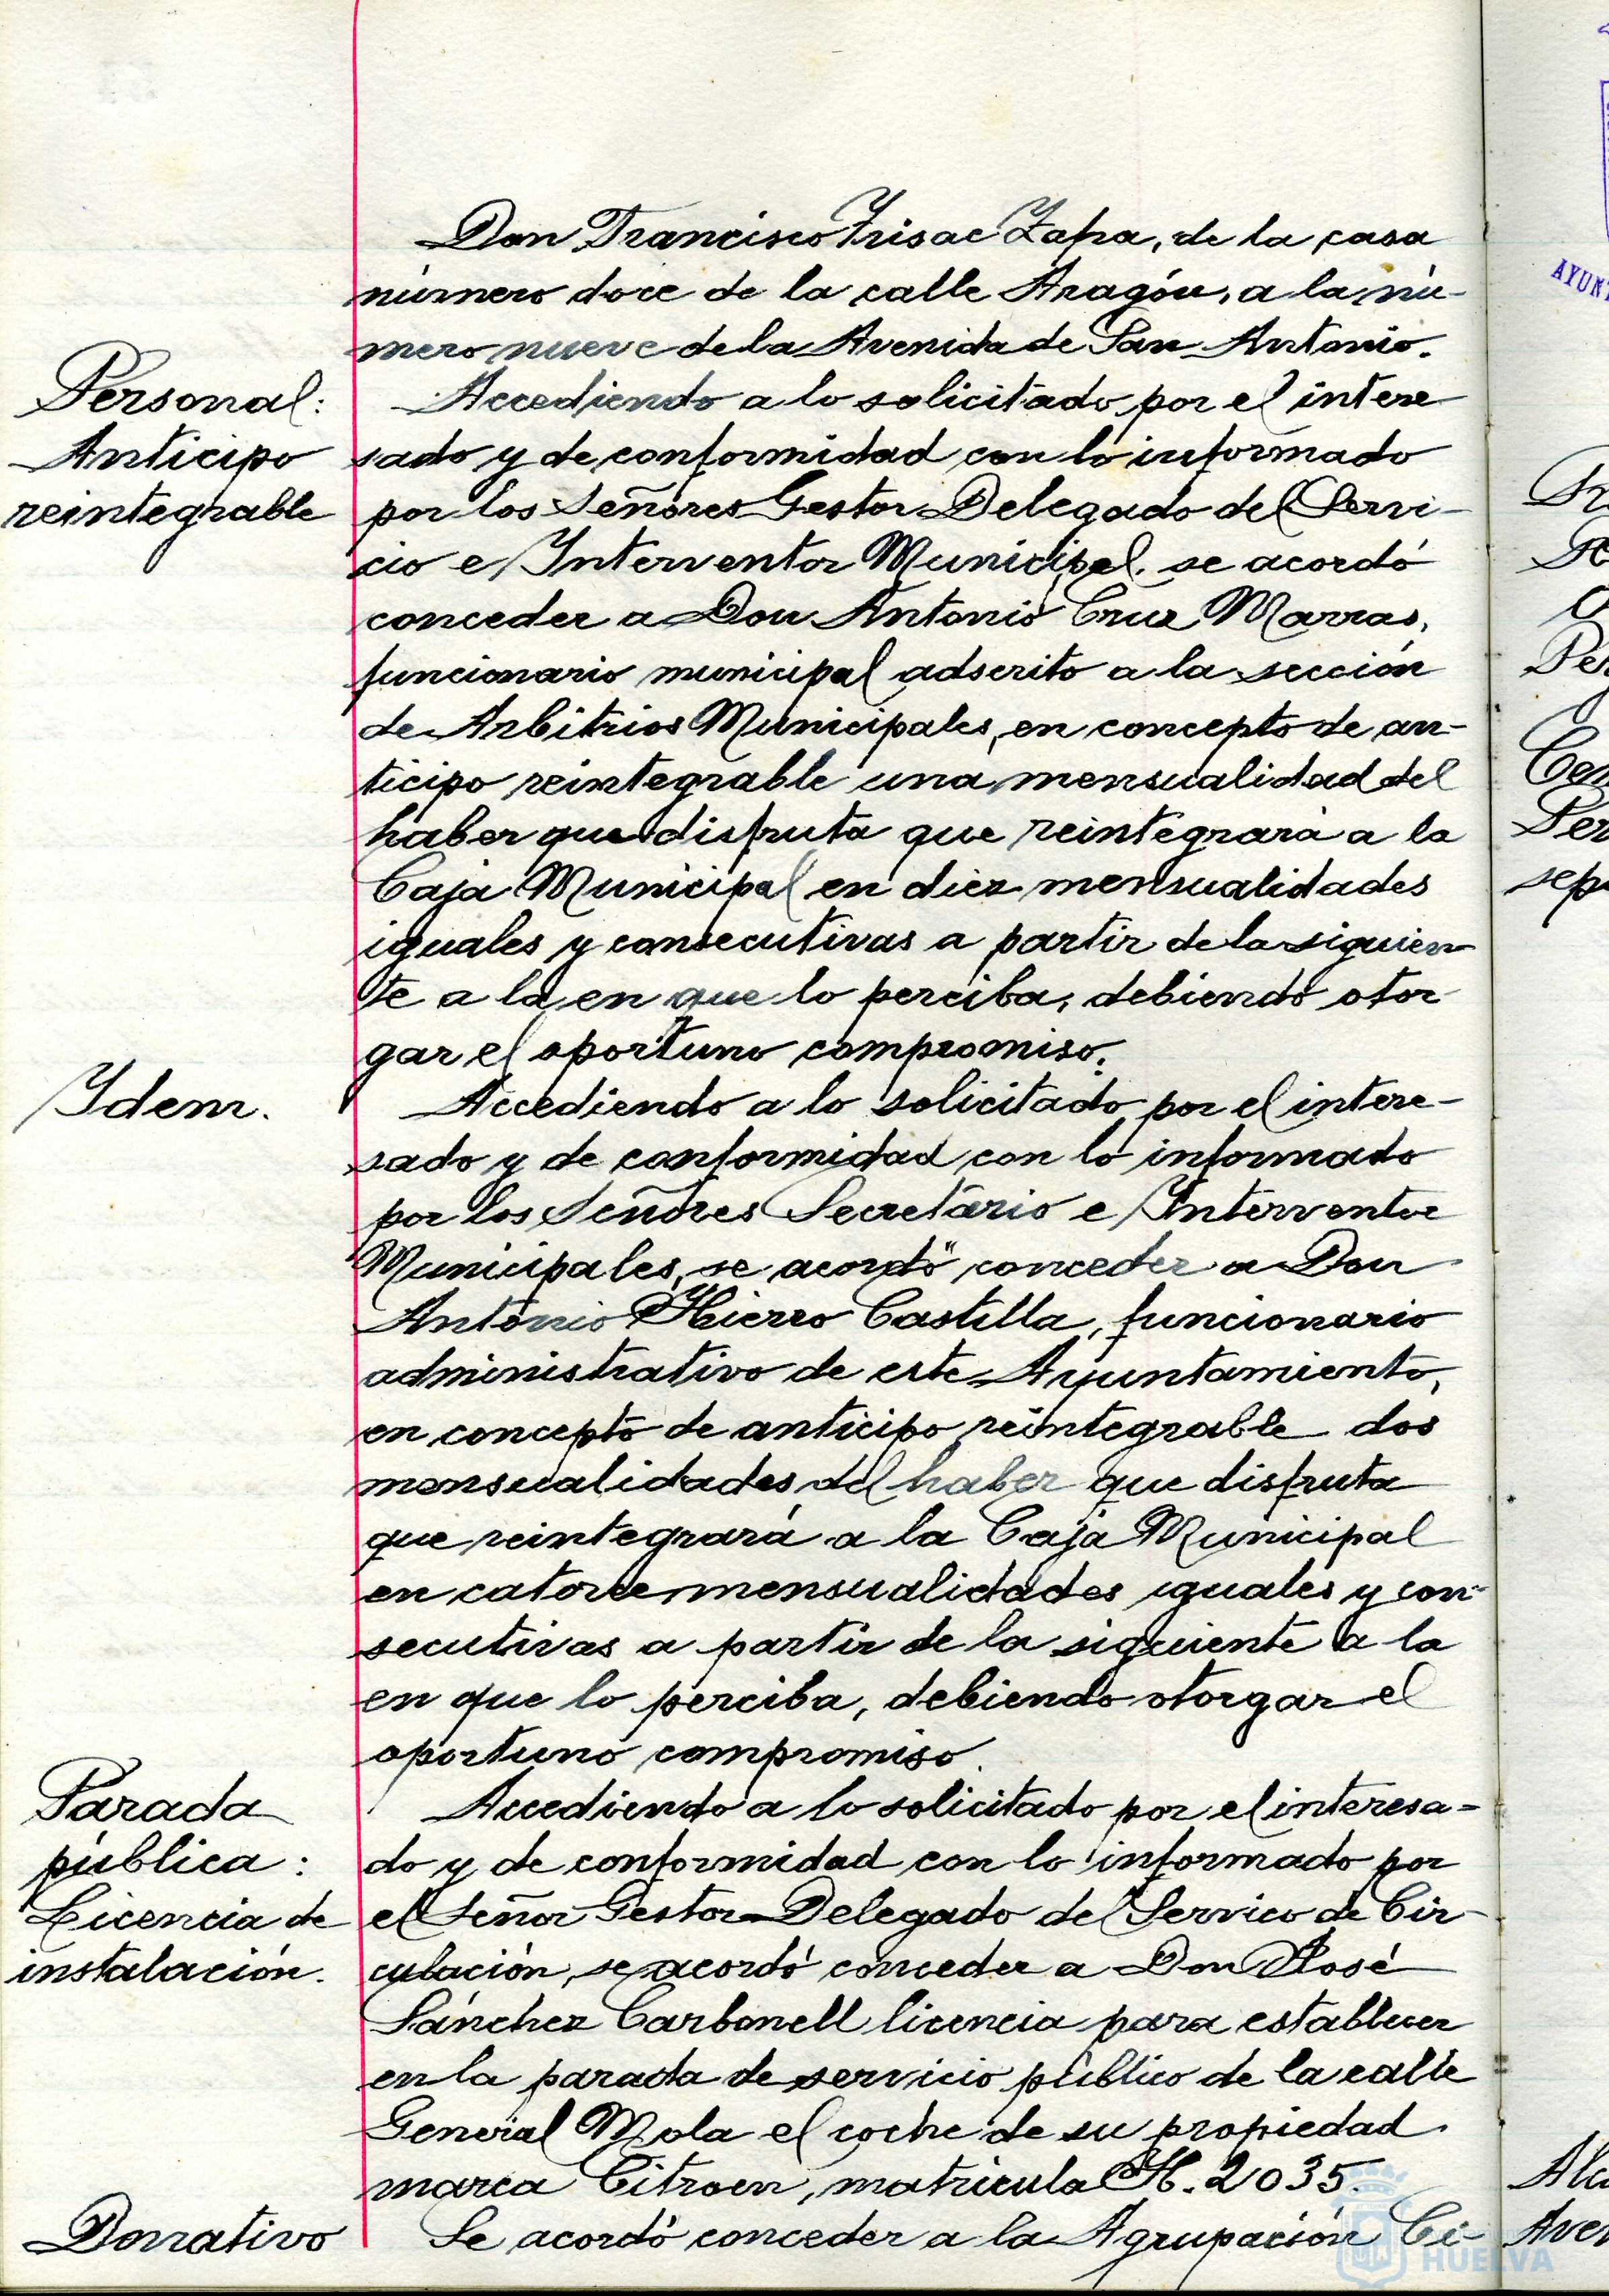 Don Francisco Frisac Zapa, de la casa
número doce de la calle Aragón, a la nú-
mero nueve de la Avenida de San Antonio.
Personal:
Anticipo
reintegrable
Accediendo a lo solicitado por el intere
sado y de conformidad con lo informado
por los Señores Gestor Delegado del Servi-
cio e Interventor Municipal, se acordó
conceder a Don Antonio Cruz Marras,
funcionario municipal adscrito a la sección
de Arbitrios Municipales, en concepto de an-
ticipo reintegrable una mensualidad del
haber que disfruta que reintegrará a la
Caja Municipal en diez mensualidades
iguales y consecutivas a partir de la siguien-
te a la en que lo perciba, debiendo otor
gar el oportuno compromiso.
Idem.
Accediendo a lo solicitado por el intere-
sado y de conformidad con lo informado
por los Señores Secretario e Interventor
Municipales, se acordó conceder a Don
Antonio Hierro Castilla, funcionario
administrativo de este Ayuntamiento,
en concepto de anticipo reintegrable dos
mensualidades del haber que disfruta
que reintegrará a la Caja Municipal
en catorce mensualidades iguales y con-
secutivas a partir de la siguiente a la
en que lo perciba, debiendo otorgar el
oportuno compromiso.
Parada
pública:
Licencia de
instalación.
Accediendo a lo solicitado por el interesa-
do y de conformidad con lo informado por
el Señor Gestor Delegado del Servico de Cir-
culación, se acordó conceder a Don José
Sánchez Carbonell licencia para establecer
en la parada de servicio público de la calle
General Mola el coche de su propiedad
marca Citroen, matrícula H. 2035.
Donativo
Se acordó conceder a la Agrupación Ci-
HUELVA
AYUN
Pe
Con
Per
sep
Alc
Aven